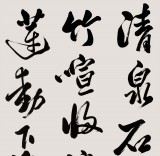 清泉石
竹喧收
莲动下